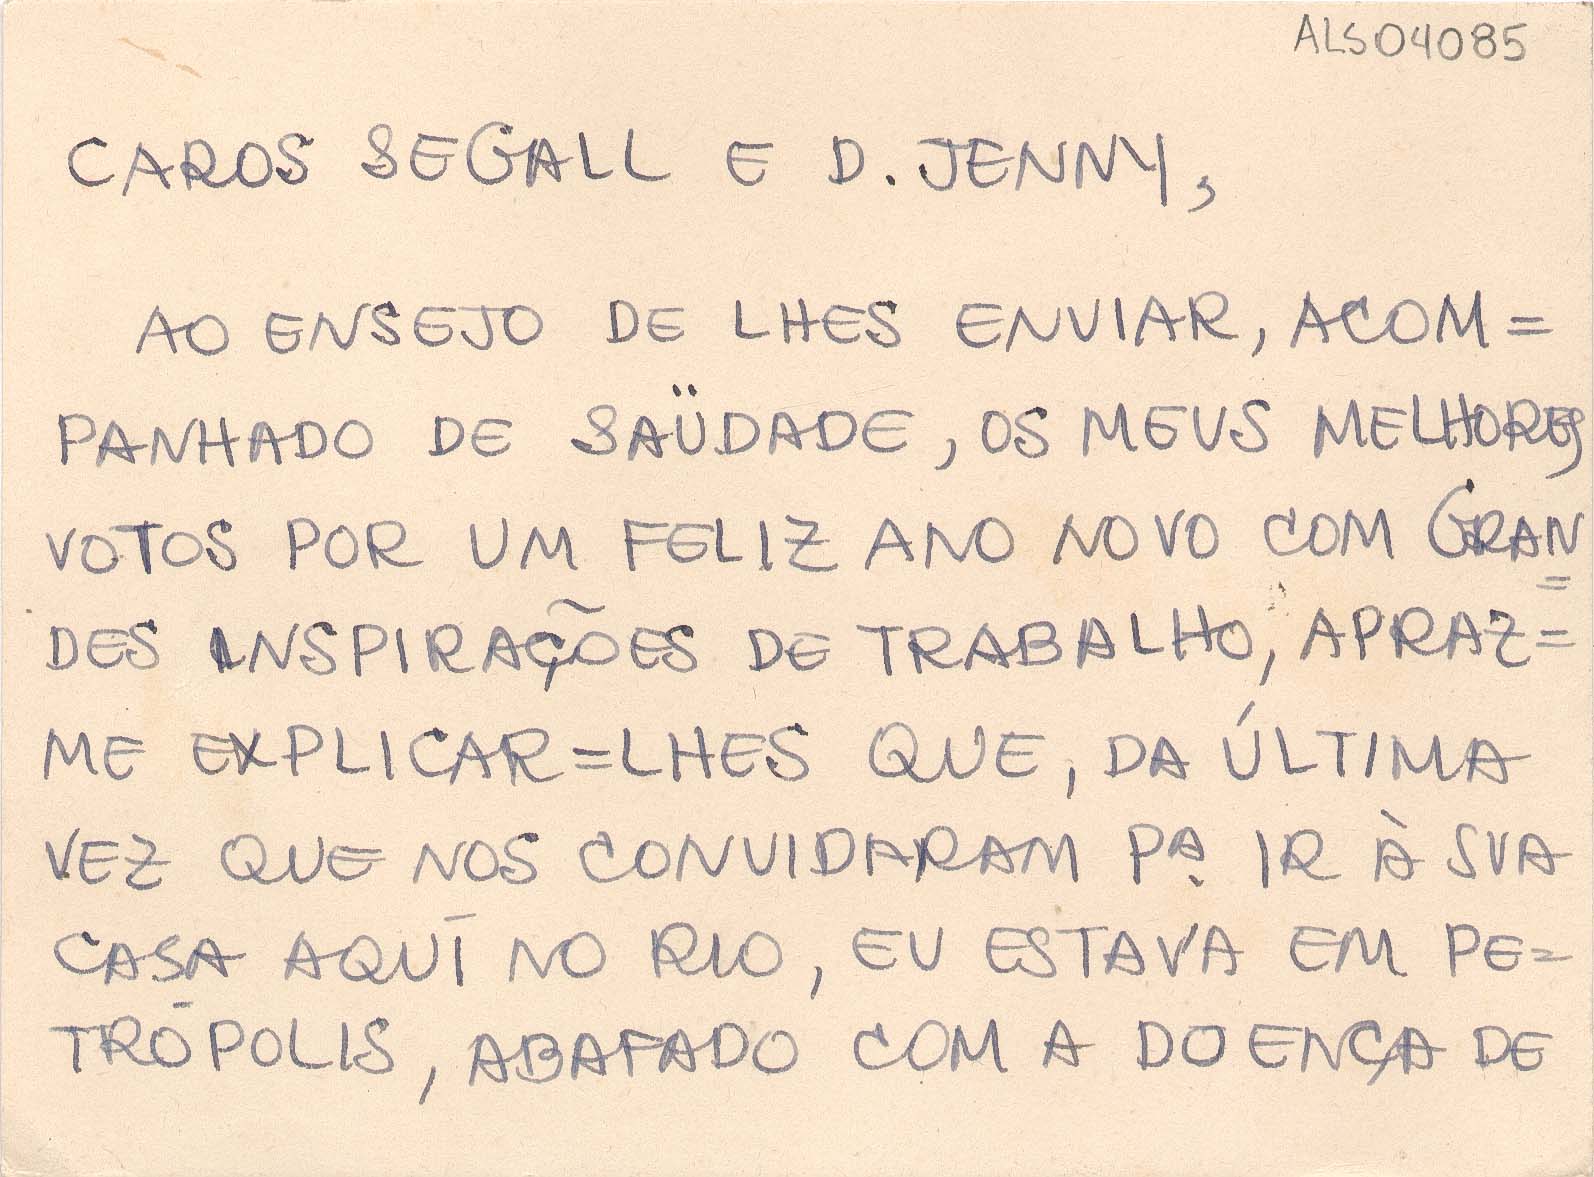 ALS04085
CAROS SEGALL E D. JENNY,
AO ENSEJO DE LHES ENVIAR, ACOM=
PANHADO DE SAÜDADE, OS MEUS MELHORES
VOTOS POR UM FELIZ ANO NOVO COM GRAN=
DES INSPIRAÇÕES DE TRABALHO, APRAZ=
ME EXPLICAR=LHES QUE, DA ÚLTIMA
VEZ QUE NOS CONVIDARAM Pª. IR À SUA
CASA AQUĪ NO RIO, EU ESTAVA EM PE=
TRŌPOLIS, ABAFADO COM A DOENÇA DE